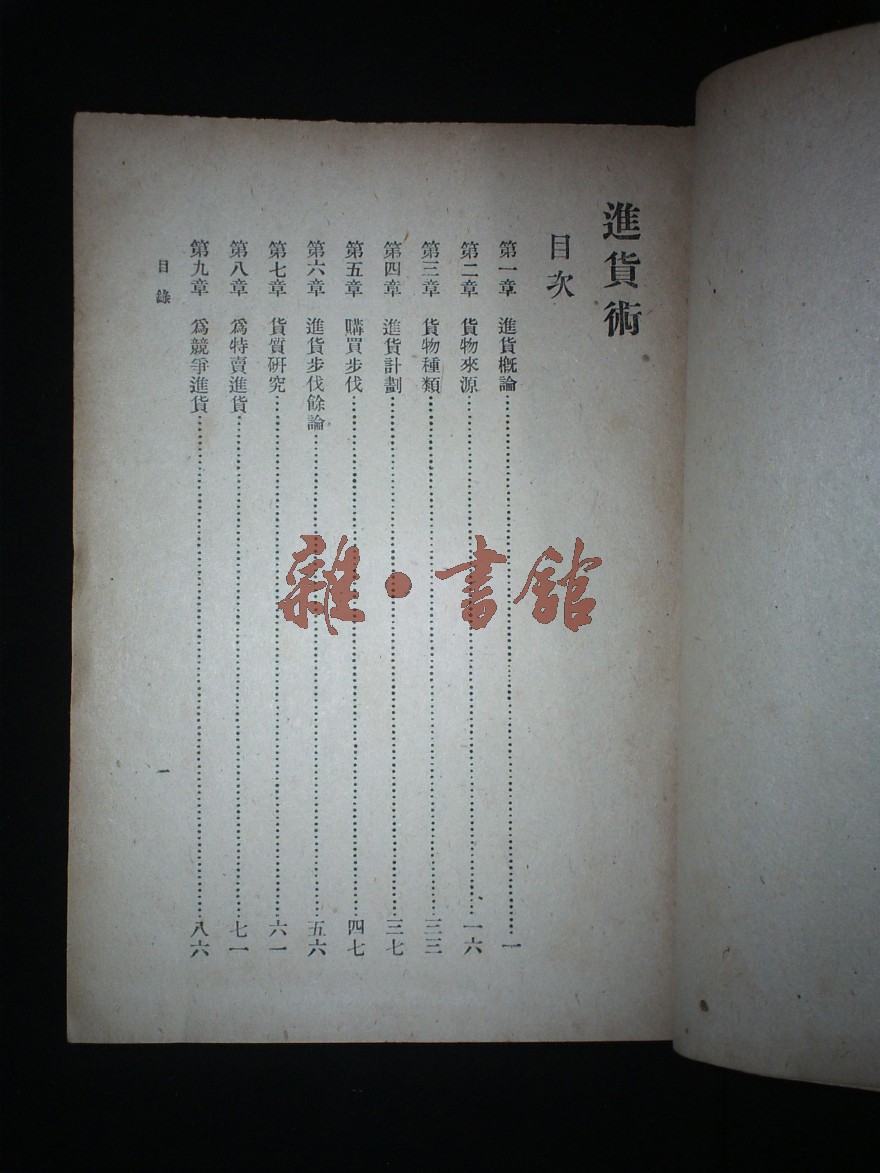 進貨術
目次
第一章 進貨概論……一
第二章 貨物來源……一六
第三章 貨物種類……三三
第四章 進貨計劃……三七
第五章 購買步伐……四七
第六章 進貨步伐餘論……五六
第七章 貨質研究……六一
第八章 爲特賣進貨……七一
第九章 爲競爭進貨……八六
目錄
一
雜·書館